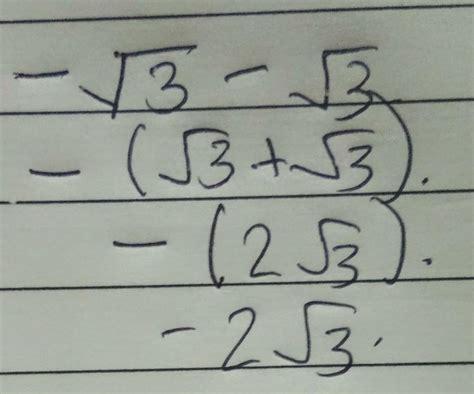 -√3 - √3
- (√3 + √3).
- (2√3).
-2√3.